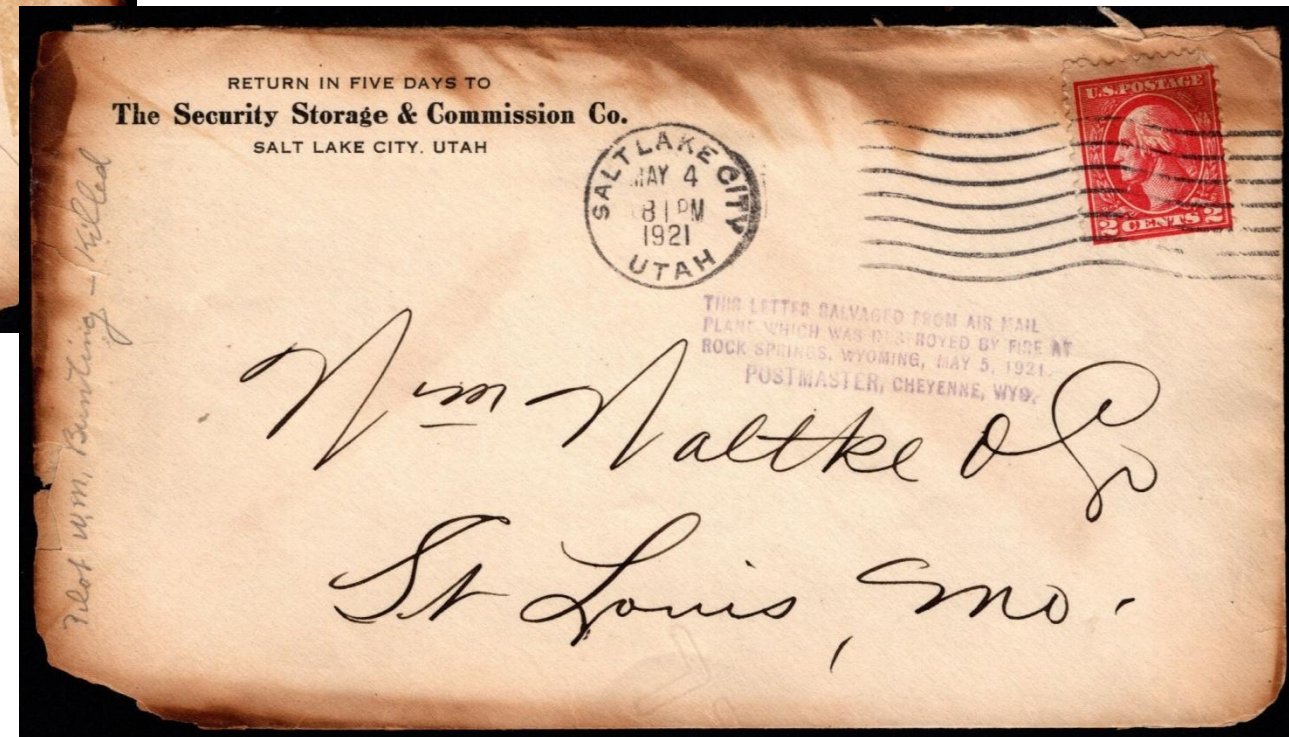 RETURN IN FIVE DAYS TO
The Security Storage & Commission Co.
SALT LAKE CITY, UTAH
SALT LAKE CITY
MAY 4
1921
UTAH
U.S. POSTAGE
2 CENTS 2
THIS LETTER SALVAGED FROM AIR MAIL
PLANE WHICH WAS DESTROYED BY FIRE AT
ROCK SPRINGS, WYOMING, MAY 5, 1921.
POSTMASTER, CHEYENNE, WYO.
Wm Waltke & Co
St Louis, Mo.
Pilot Wm, Bunting - Killed